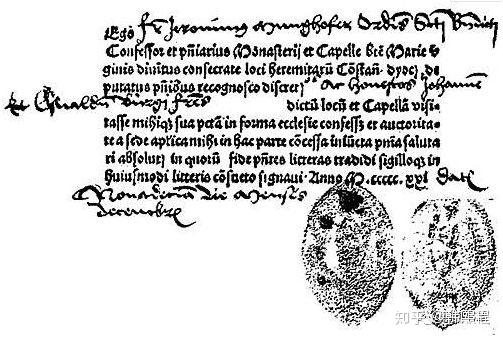 Ego fr Jeronimus Ordīs Scti Bndicti
Confessor et pñiarius Monasterij et Capelle btē Marie v
ginis divinitus consecrate loci heremitarū Cōstañ. dyoc̄. de
putatus pñibus recognosco discret os Ac honestos Johannē
Et frēs dictū locū et Capellā visi-
tasse mihiqꝫ sua pctā in forma ecclesie confessos et auctorita-
te a sede aplica mihi in hac parte cōcessa iniūcta pnīa saluta
ri absolui in quorū fidē pñtes litteras tradidi sigilloqꝫ in
huiusmodi litteris cōsueto signaui. Anno M.ccccc.xxi. datē
Nonadecima die Mensis
decembris
知乎